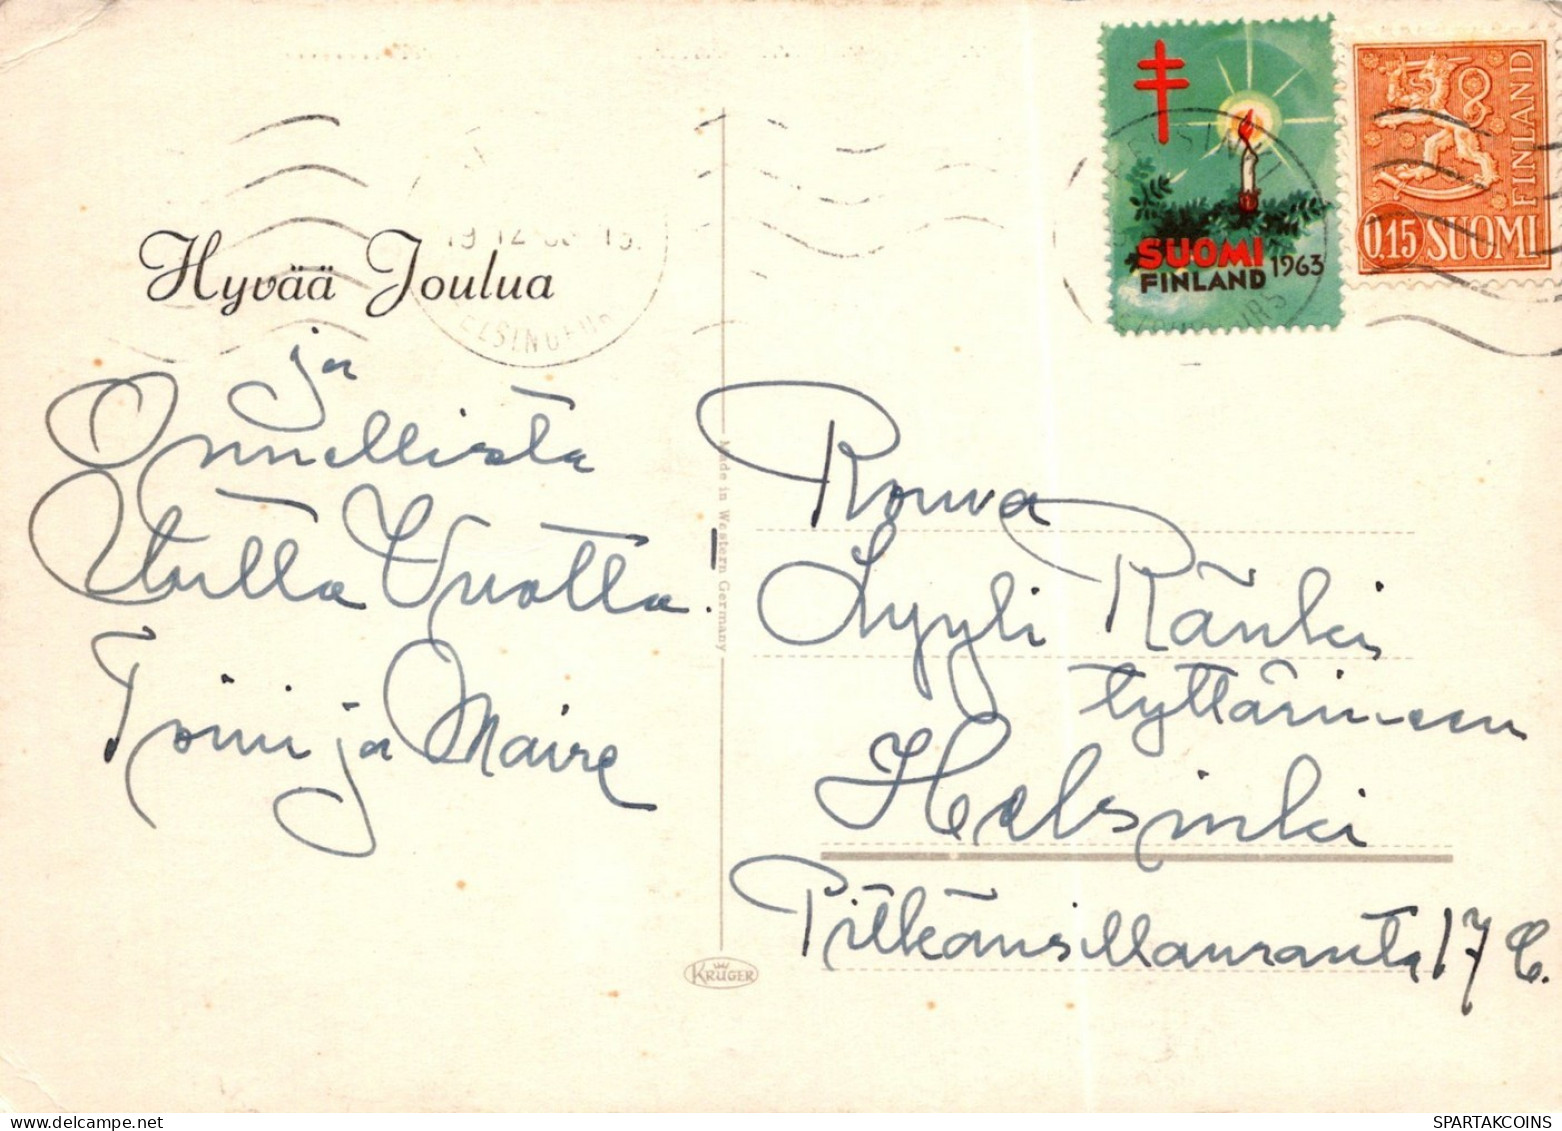 Hyvää Joulua
ja
Onnellista
Uutta Vuotta.
Toini ja Maire
SUOMI
FINLAND 1963
0,15 SUOMI
FINLAND
HELSINKI
19.12
Made in Western Germany
KRÜGER
Rouva
Lyyli Ränki
tyttärineen
Helsinki
Pitkänsillanranta 17 C.
SPARTAKCOINS